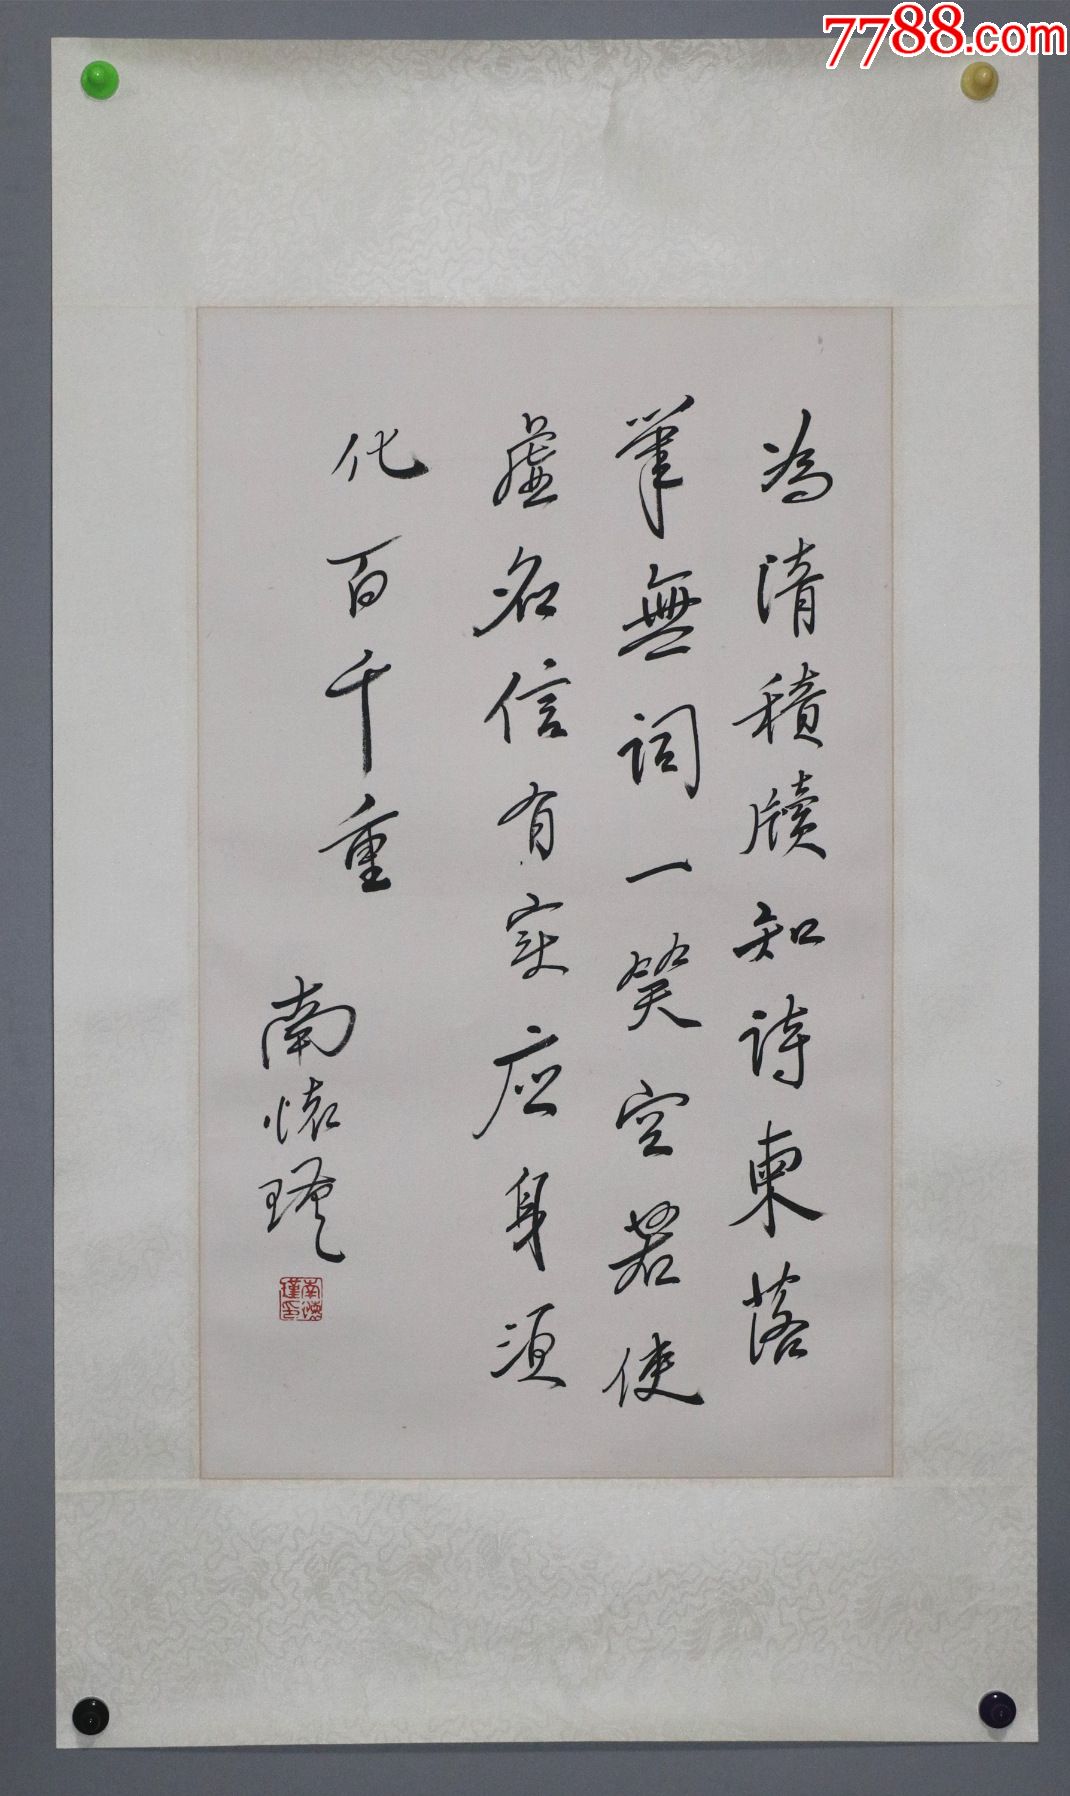 7788.com
為清積牘知詩柬落
筆無詞一笑空若使
虛名信有实应身須
化百千重
南懷瑾
南懷瑾印